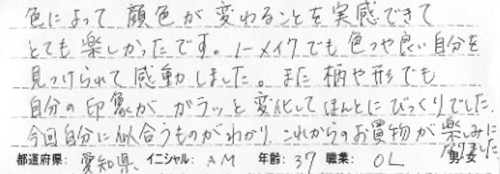 色によって顔色が変わることを実感できて
とても楽しかったです。ノーメイクでも色つや良い自分を
見つけられて感動しました。また柄や形でも
自分の印象がガラッと変化してほんとにびっくりでした
今回自分に似合うものがわかり、これからのお買物が楽しみに
なりました
都道府県: 愛知県 イニシャル: AM 年齢: 37 職業: OL 男・女